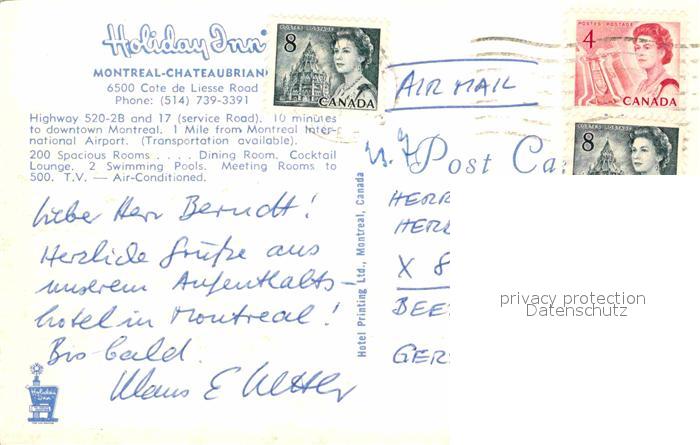 Holiday Inn
MONTREAL-CHATEAUBRIAN
6500 Cote de Liesse Road
Phone: (514) 739-3391
Highway 520-2B and 17 (service Road). 10 minutes
to downtown Montreal. 1 Mile from Montreal Inter-
national Airport. (Transportation available).
200 Spacious Rooms . . . . Dining Room. Cocktail
Lounge. 2 Swimming Pools. Meeting Rooms to
500. T.V. — Air-Conditioned.
Lieber Herr Berndt!
Herzliche Grüße aus
unserem Aufenthalts-
hotel in Montreal!
Bis bald.
Klaus E
Holiday Inn
Hotel Printing Ltd., Montreal, Canada
POSTES POSTAGE
8
CANADA
AIR MAIL
POSTES POSTAGE
4
CANADA
POSTES POSTAGE
8
Post Ca
HERR
HER
X 8
BEE
GER
privacy protection
Datenschutz